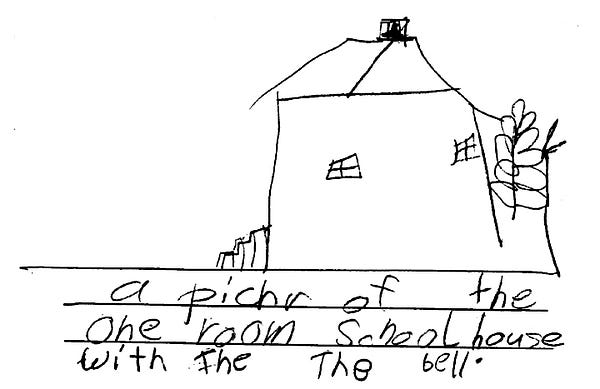 a pichr of the
one room School house
with the The bell.